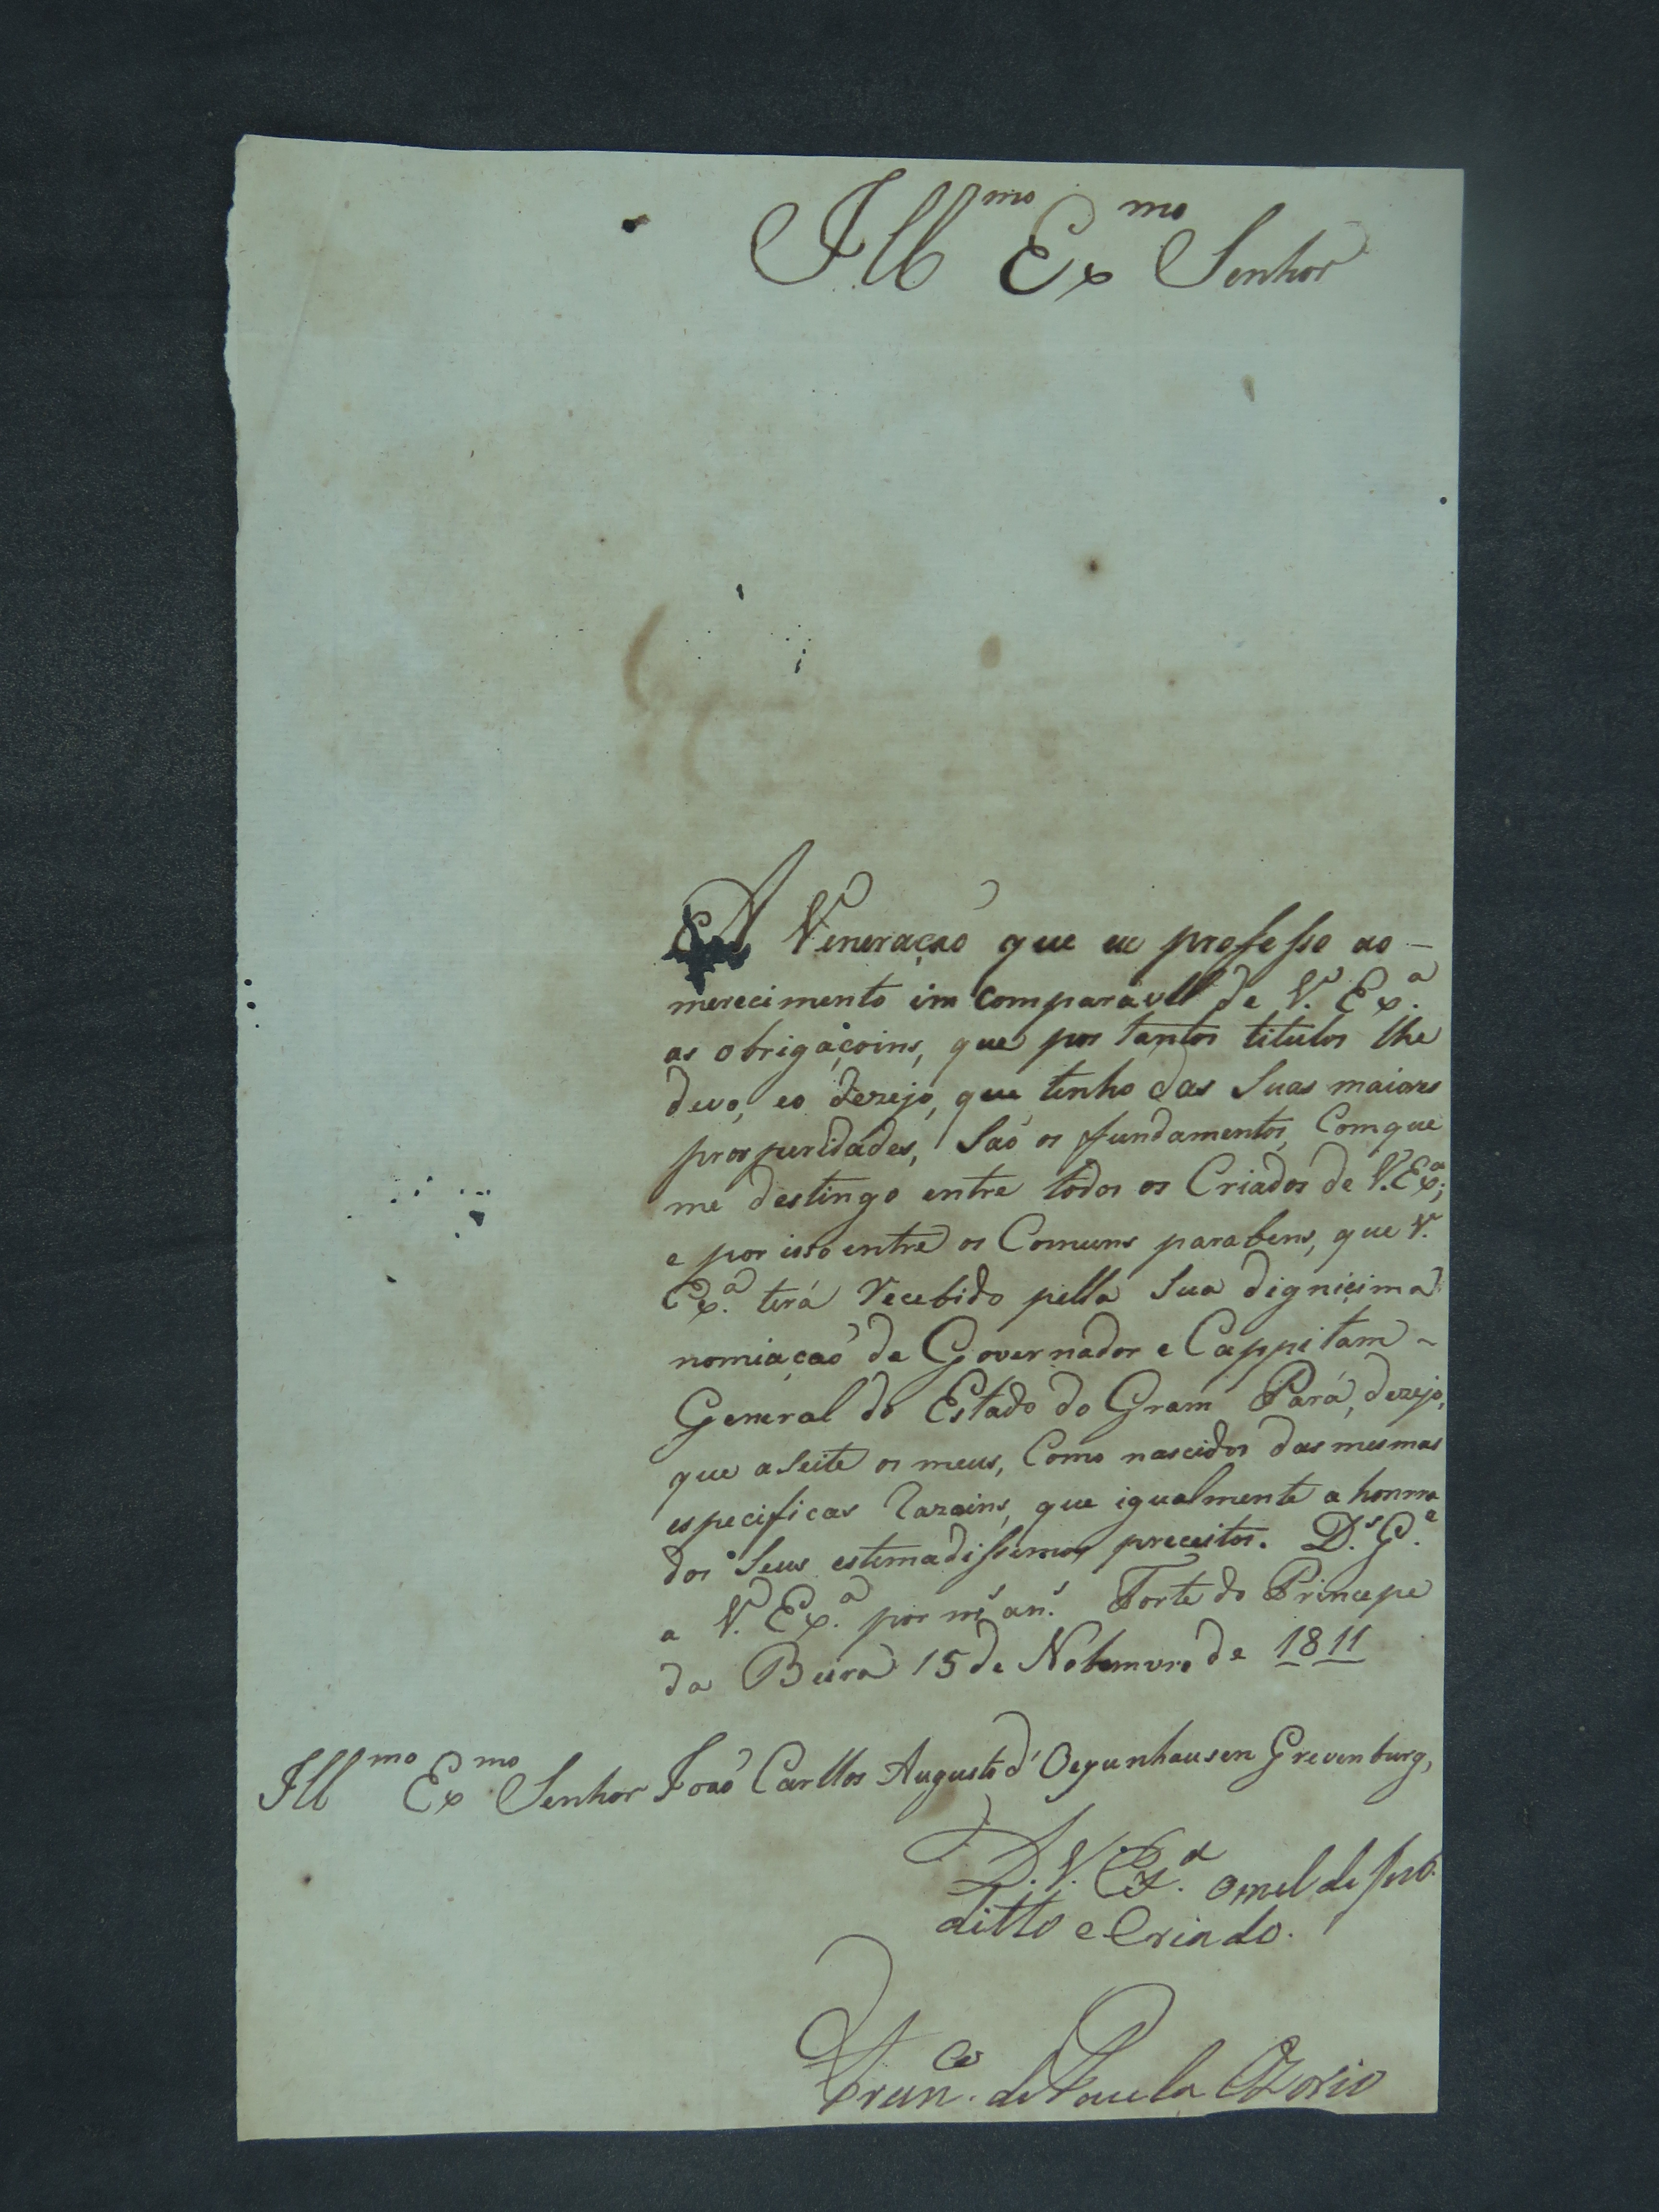 Ill.mo Ex.mo Senhor
A Veneraçaõ que eu professo ao -
merecimento im comparavel de V. Ex.a
as obrigaçoins, que por tantos titulos lhe
devo, eo dezejo, que tenho das Suas maiores
prosperidades, Saõ os fundamentos, Comque
me destingo entre todos os Criados de V. Ex.a;
e por isso entre os Comuns parabens, que V.
Ex.a terá Recebido pella Sua digniçima
nomiaçaõ de Governador e Cappitam -
General do Estado do Gram Pará, dezejo,
que aseite os meus, Como nascidos das mesmas
especificas Razoins, que igualmente a honrra
dos Seus estimadissimos preceitos. D.s G.e
a V. Ex.a por m.s an.s Forte do Principe
da Beira 15 de Nobemvro de 1811
Ill.mo Ex.mo Senhor Joaõ Carllos Augusto d' Oeyunhausen Grevenburg,
D. V. Ex.a omel de
ditto e Criado.
Fran.co de Paula Ozorio